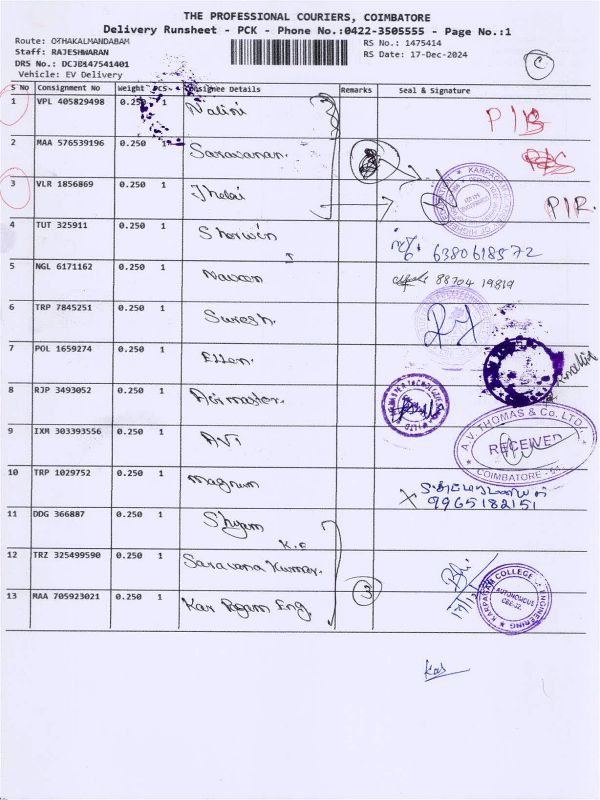 THE PROFESSIONAL COURIERS, COIMBATORE
Delivery Runsheet - PCK - Phone No.:0422-3505555 - Page No.:1
Route: OTHAKALMANDABAM
RS No.: 1475414
Staff: RAJESHWARAN
RS Date: 17-Dec-2024
DRS No.: DCJB147541401
Vehicle: EV Delivery
C
S No Consignment No Weight PCS Consignee Details Remarks Seal & Signature
1 VPL 405829498 0.250 1 Nalini
2 MAA 576539196 0.250 1 Saravanan.
3 VLR 1856869 0.250 1 P/R.
4 TUT 325911 0.250 1 Sherwin 6380618572
5 NGL 6171162 0.250 1 Naveen 88704 19819
6 TRP 7845251 0.250 1 Suresh.
7 POL 1659274 0.250 1 Ellen.
8 RJP 3493052 0.250 1
9 IXM 303393556 0.250 1 AVI
A.V. THOMAS & Co. LTD.,
RECEIVED
COIMBATORE
10 TRP 1029752 0.250 1 Magnum
9965182151
11 DDG 366887 0.250 1 Shyam
K.E
12 TRZ 325499590 0.250 1 Saravana Kumar.
13 MAA 705923021 0.250 1 Kar Pagam Eng. 3
KARPAGAM COLLEGE OF ENGINEERING
AUTONOMOUS
CBE-32.